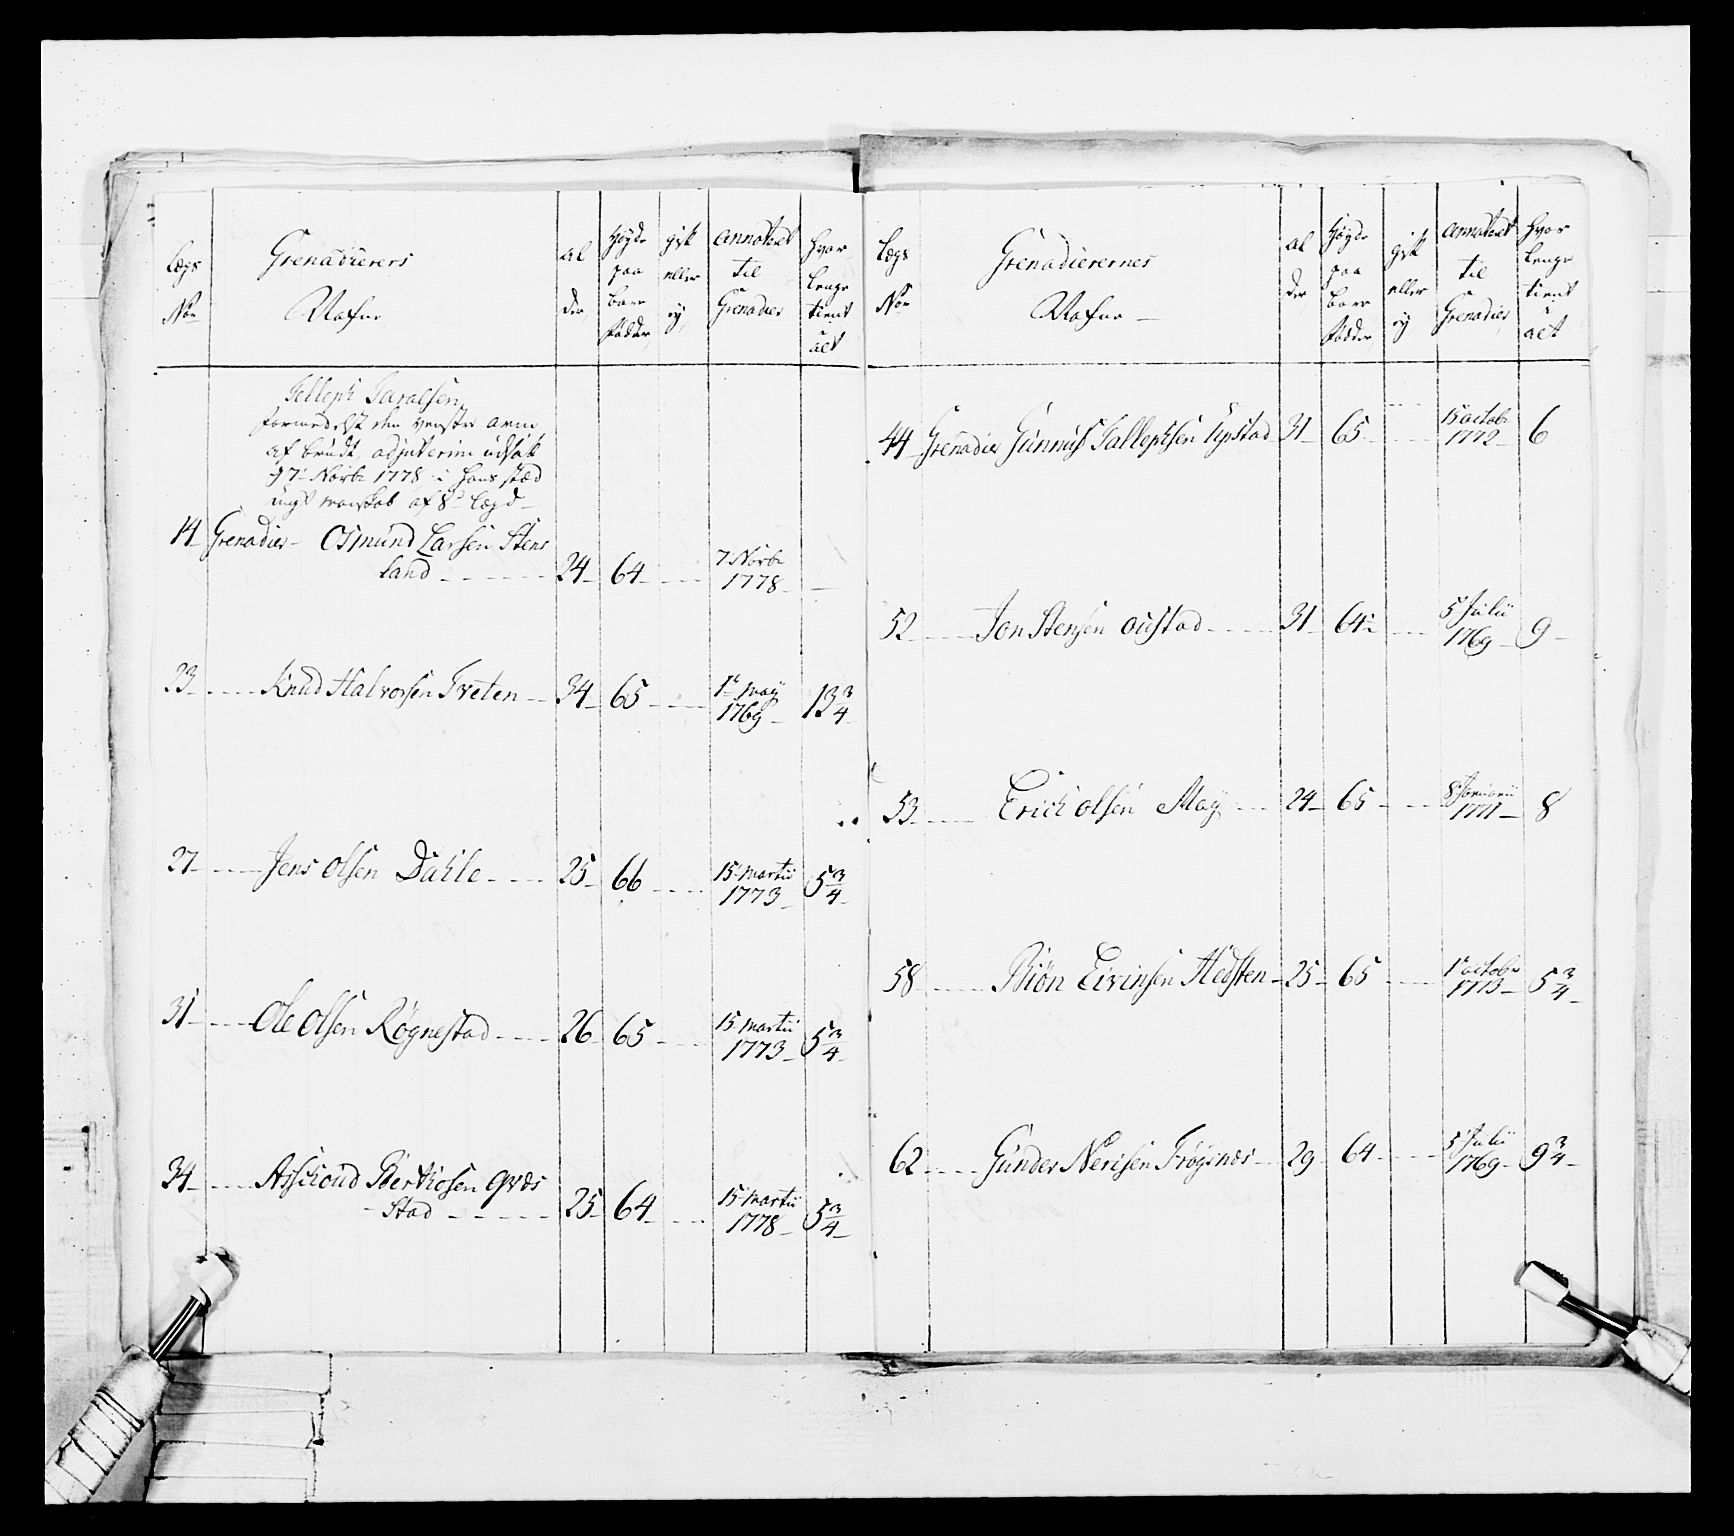 Lægs
No
Grenadierers
Nafne
al
der
Høyde
paa
bare
Fødder
gift
eller
ey
annoteret
til
Grenadier
hvor
lenge
tient
i
alt
Tellef Taralsen
formedelst den venstre arm
af brudt, adjusterim udsat
d 7 Novbr 1778 i hans stæd
ungt manskab af 8de Lægd
14 Grenadier Osmund Larsen Stens
land 24 64 7 Novbr 1778
23 Knud Halvorsen Tveten 34 65 1te May 1769 13 3/4
27 Jens Olsen Dahle 25 66 15 Martii 1773 5 3/4
31 Ole Olsen Røgnestad 26 65 15 Martii 1773 5 3/4
34 Berthosen
Stad 25 64 15 Martii 1778 5 3/4
Lægs
No
Grenadierernes
Nafne
al
der
Høyde
paa
bare
Fødder
gift
eller
ey
annoteret
til
Grenadier
hvor
lenge
tient
i
alt
44 Grenadier Gunnuf Tallefsen Upstad 31 65 15 octobr 1772 6
52 Jon Stensen Oustad 31 64 5 Julii 1769 9
53 Erich Olsen Moy 24 65 8 Januarii 1771 8
58 Biøn Eivinsen Hedsten 25 65 1te octobr 1773 5 3/4
62 Gunder Nerisen Frøysnæs 29 64 5 Julii 1769 9 3/4